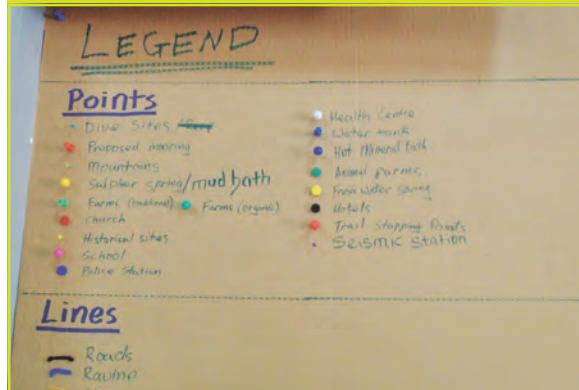 LEGEND
Points
Dive Sites
Proposed mooring
Mountains
Sulpher spring/mud bath
Farms (traditional) Farms (organic)
Church
Historical sites
School
Police Station
Health Centre
Water tank
Hot Mineral bath
Animal farms
Fresh water spring
Hotels
Trail Stopping Points
Seismic Station
Lines
Roads
Ravine